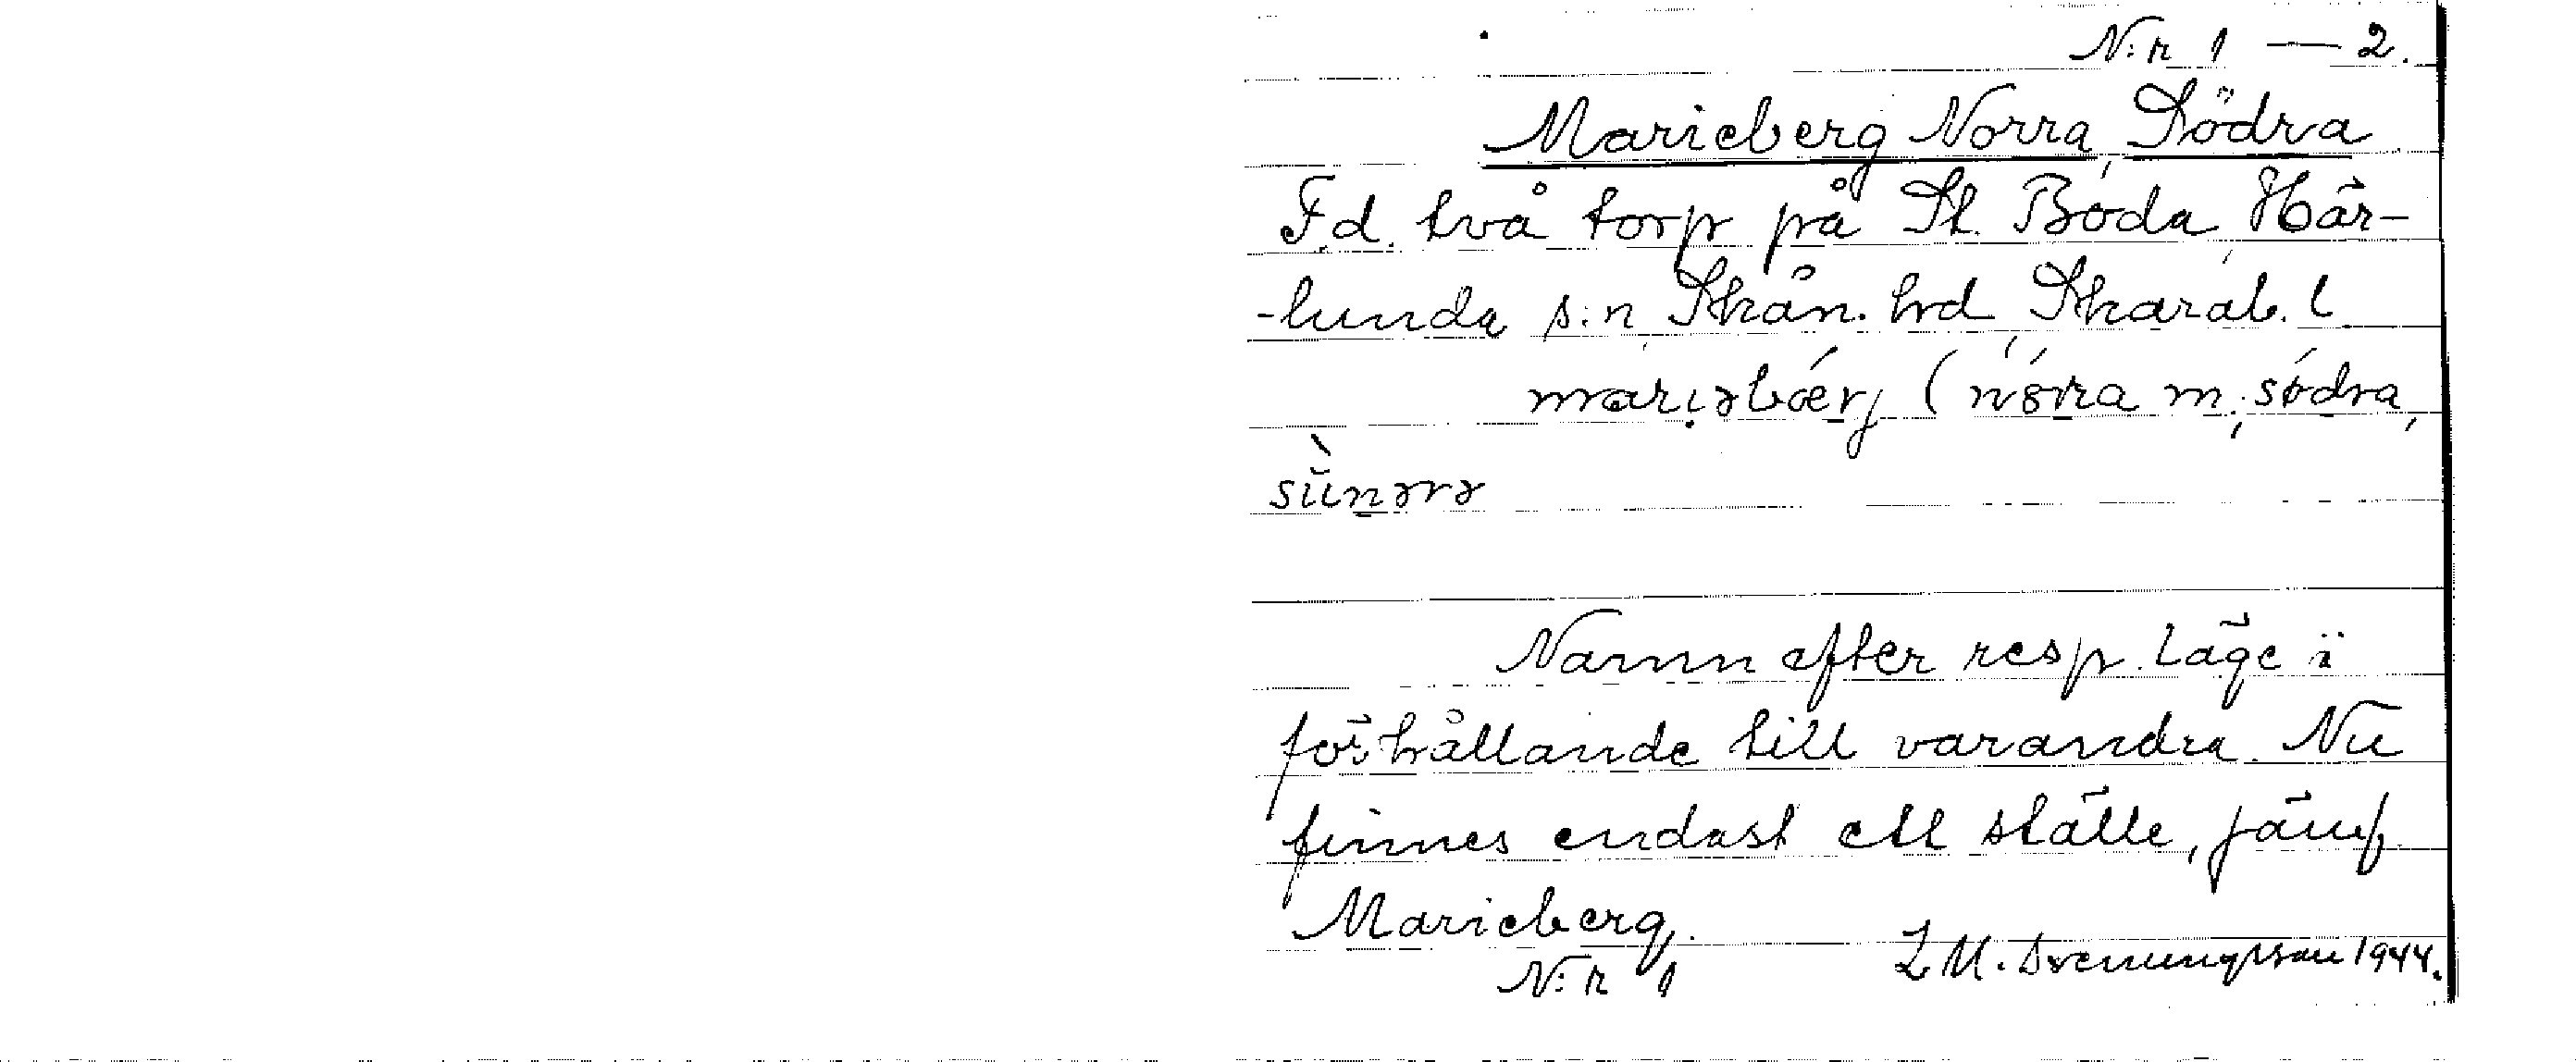 N:r 1 — 2.
Marieberg Norra, Södra
F.d. två torp på St. Böda, Här-
-lunda s:n, Skån. hrd, Skarab. l
(nórra m;, södra,
Namn efter resp. läge i
förhållande till varandra. Nu
finnes endast ett ställe, jämf.
Marieberg.
N:r 1
1944.